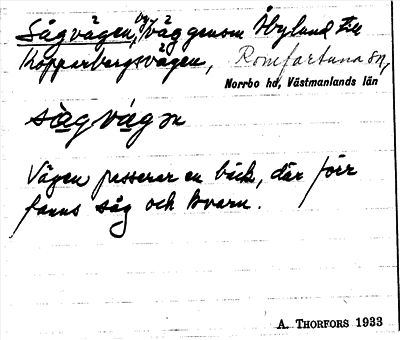 Sågvägen, väg genom Åbylund till
Kopparbergsvägen, Romfartuna sn,
Norrbo hd, Västmanlands län
sàgvägən
Vägen passerar en bäck, där förr
fanns såg och kvarn.
A. THORFORS 1933